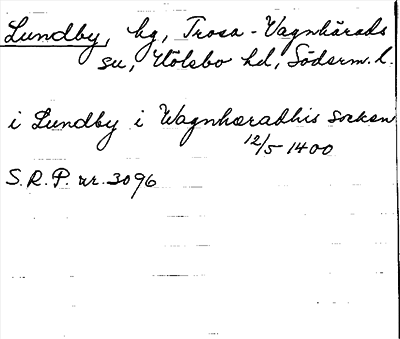 Lundby, hg, Trosa-Vagnhärads
sn, Hölebo hd, Söderm. l.
i Lundby i Wagnhæradhis socken
12/5 1400
S.R.P. nr. 3096